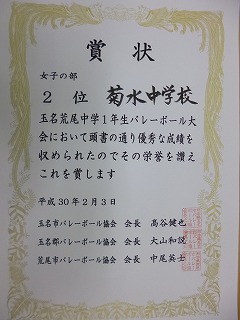 賞状
女子の部
2位 菊水中学校
玉名荒尾中学1年生バレーボール大
会において頭書の通り優秀な成績を
収められたのでその栄誉を讃え
これを賞します
平成30年2月3日
玉名市バレーボール協会 会長 髙谷健也
玉名郡バレーボール協会 会長 大山和説
荒尾市バレーボール協会 会長 中尾英士